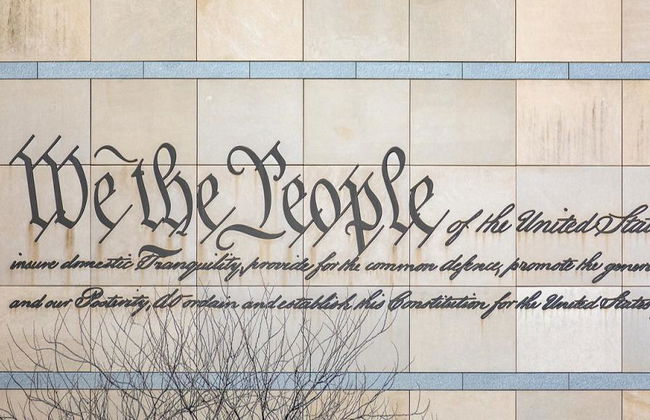 We the People of the United Stat
insure domestic Tranquility, provide for the common defence, promote the gener
and our Posterity, do ordain and establish this Constitution for the United States